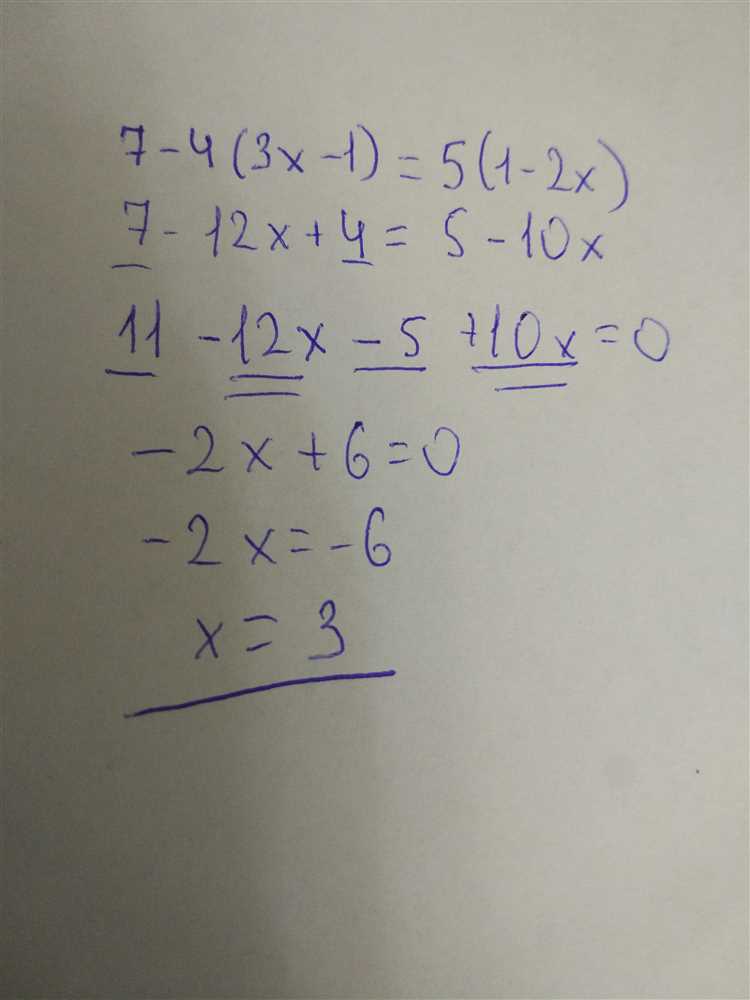 7-4(3x-1)=5(1-2x)
7-12x+4=5-10x
11-12x-5+10x=0
-2x+6=0
-2x=-6
x=3